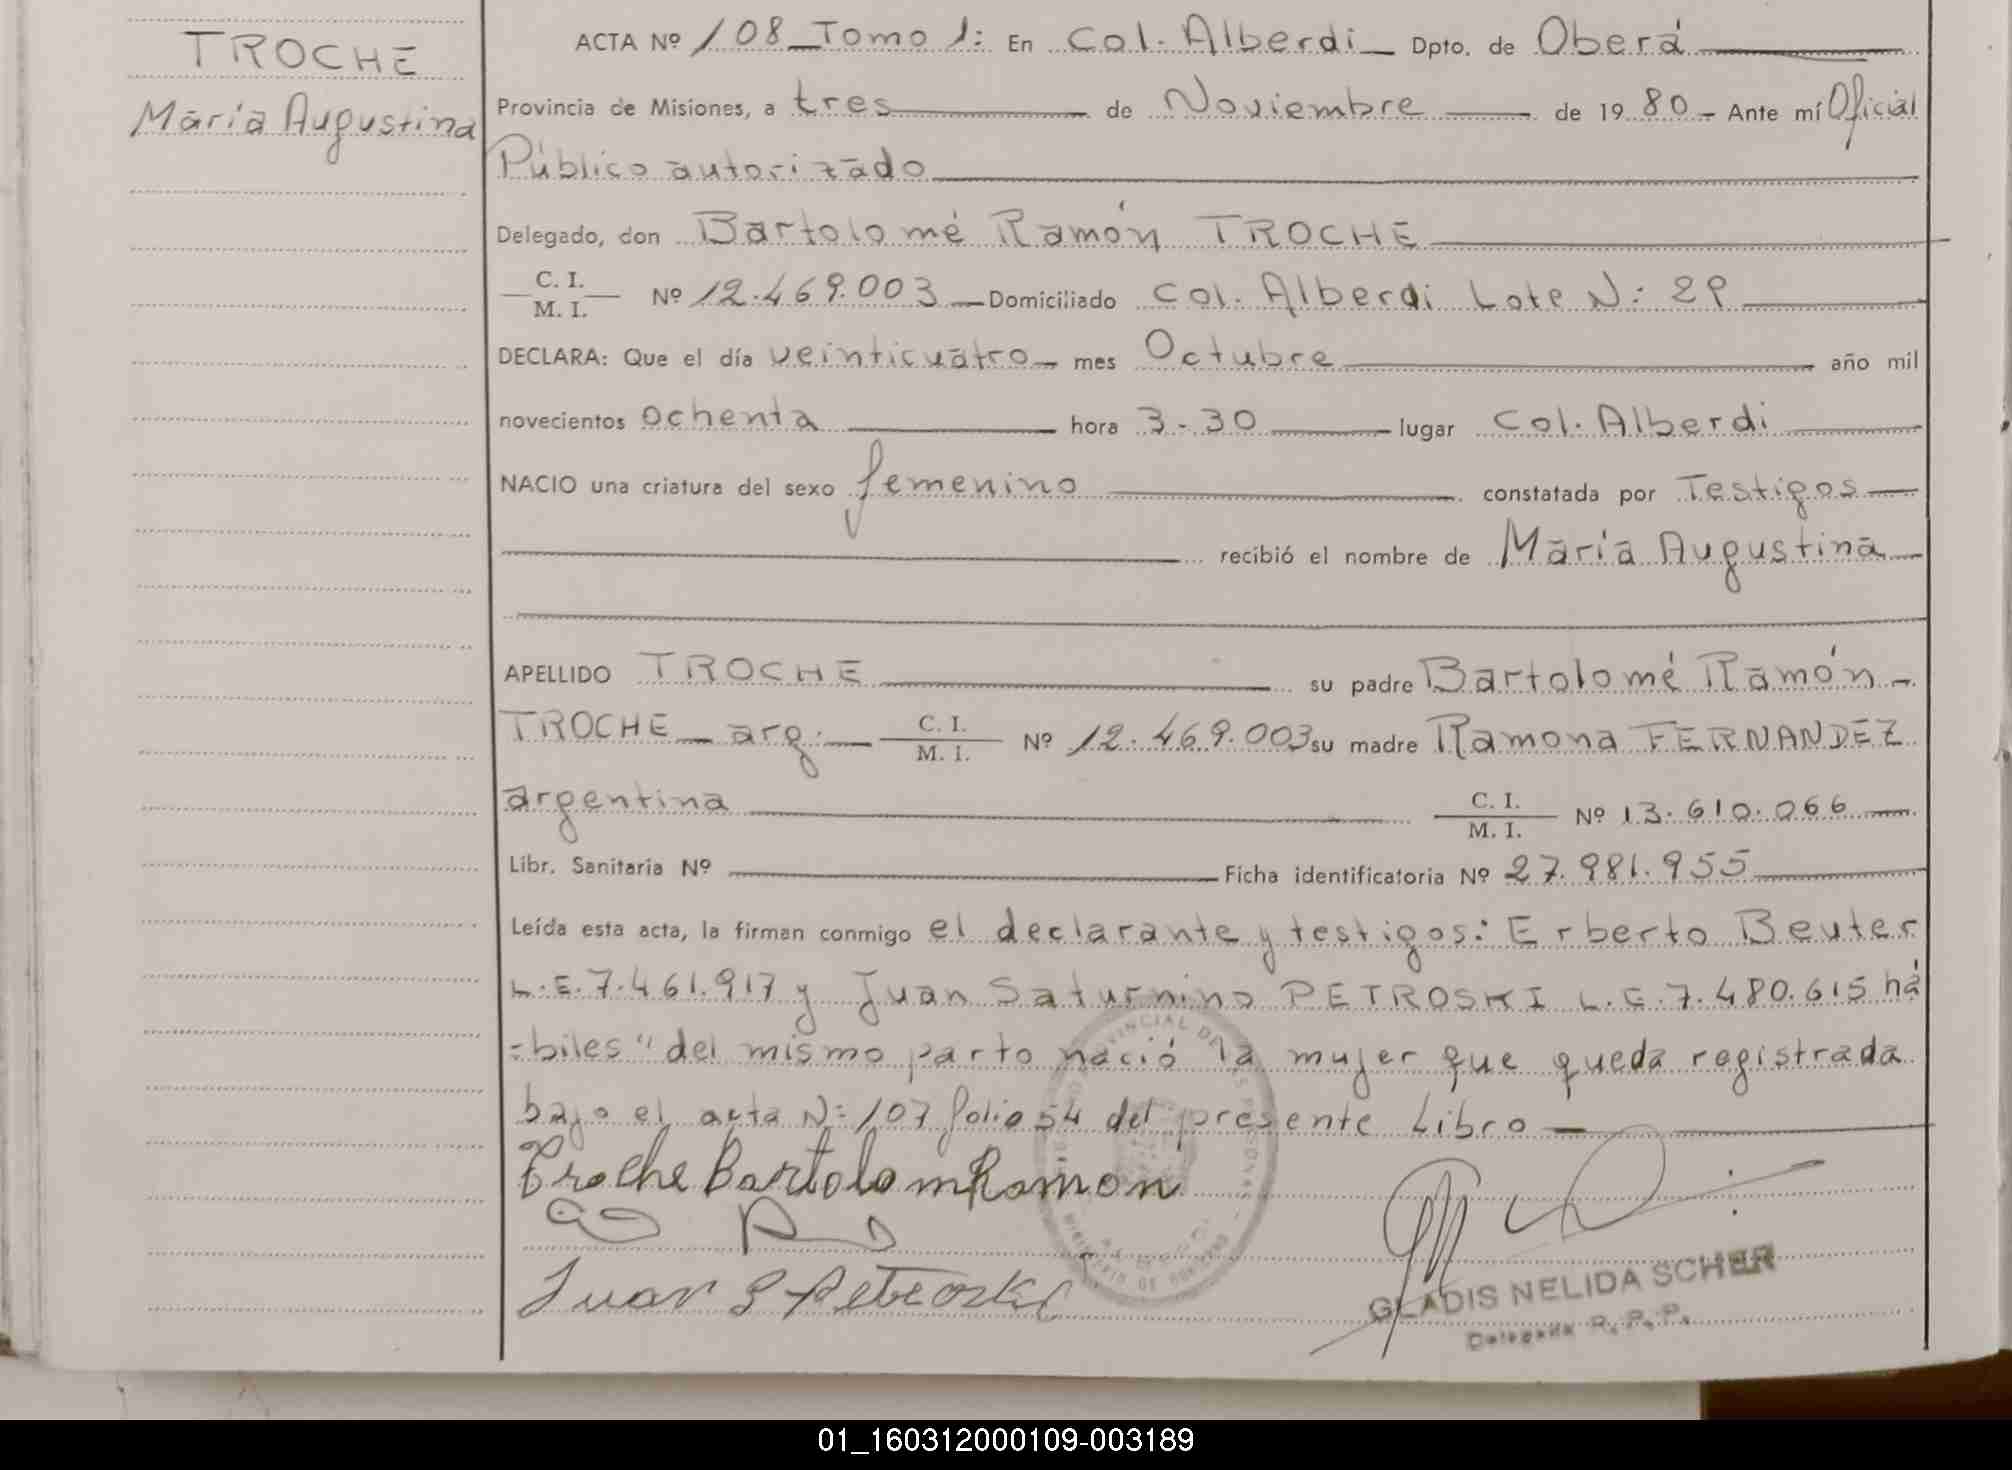 TROCHE
María Augustina
ACTA Nº 108 Tomo 1: En Col. Alberdi Dpto. de Oberá
Provincia de Misiones, a tres de Noviembre de 1980 - Ante mí Oficial
Público autorizado
Delegado, don Bartolomé Ramón TROCHE
C. I.
M. I. Nº 12.469.003 Domiciliado Col. Alberdi Lote N: 29
DECLARA: Que el día veinticuatro mes Octubre año mil
novecientos ochenta hora 3-30 lugar Col. Alberdi
NACIO una criatura del sexo femenino constatada por Testigos
recibió el nombre de María Augustina
APELLIDO TROCHE su padre Bartolomé Ramón -
TROCHE arg. C. I. M. I. Nº 12.469.003 su madre Ramona FERNANDEZ
argentina C. I. M. I. Nº 13.610.066
Libr. Sanitaria Nº Ficha identificatoria Nº 27.981.955
Leída esta acta, la firman conmigo el declarante y testigos: Erberto Beuter
L.E.7.461.917 y Juan Saturnino PETROSKI L.E.7.480.615 há
=biles" del mismo parto nació la mujer que queda registrada
bajo el acta N: 107 folio 54 del presente Libro
Troche Bartolom Ramón
Juan S Petroski
GLADIS NELIDA SCHER
Delegada R. P. P.
01_160312000109-003189